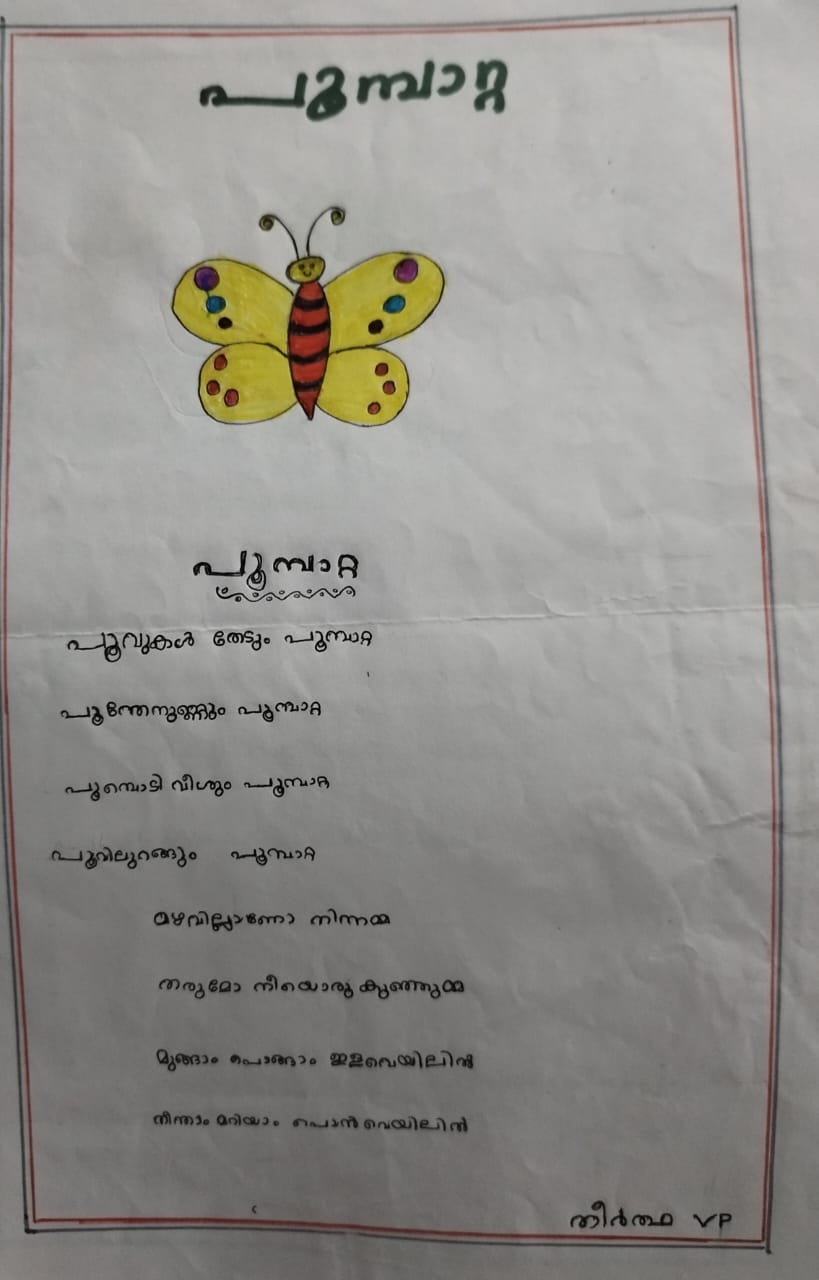 പൂമ്പാറ്റ
പൂമ്പാറ്റ
പൂവുകൾ തേടും പൂമ്പാറ്റ
പൂന്തേനുണ്ണും പൂമ്പാറ്റ
പൂമ്പൊടി വീശും പൂമ്പാറ്റ
പൂവിലുറങ്ങും പൂമ്പാറ്റ
മഴവില്ലാണോ നിന്നമ്മ
തരുമോ നീയൊരു കുഞ്ഞുമ്മ
മുങ്ങാം പൊങ്ങാം ഇളവെയിലിൽ
നീന്താം മറിയാം പൊൻവെയിലിൽ
തീർത്ഥ VP